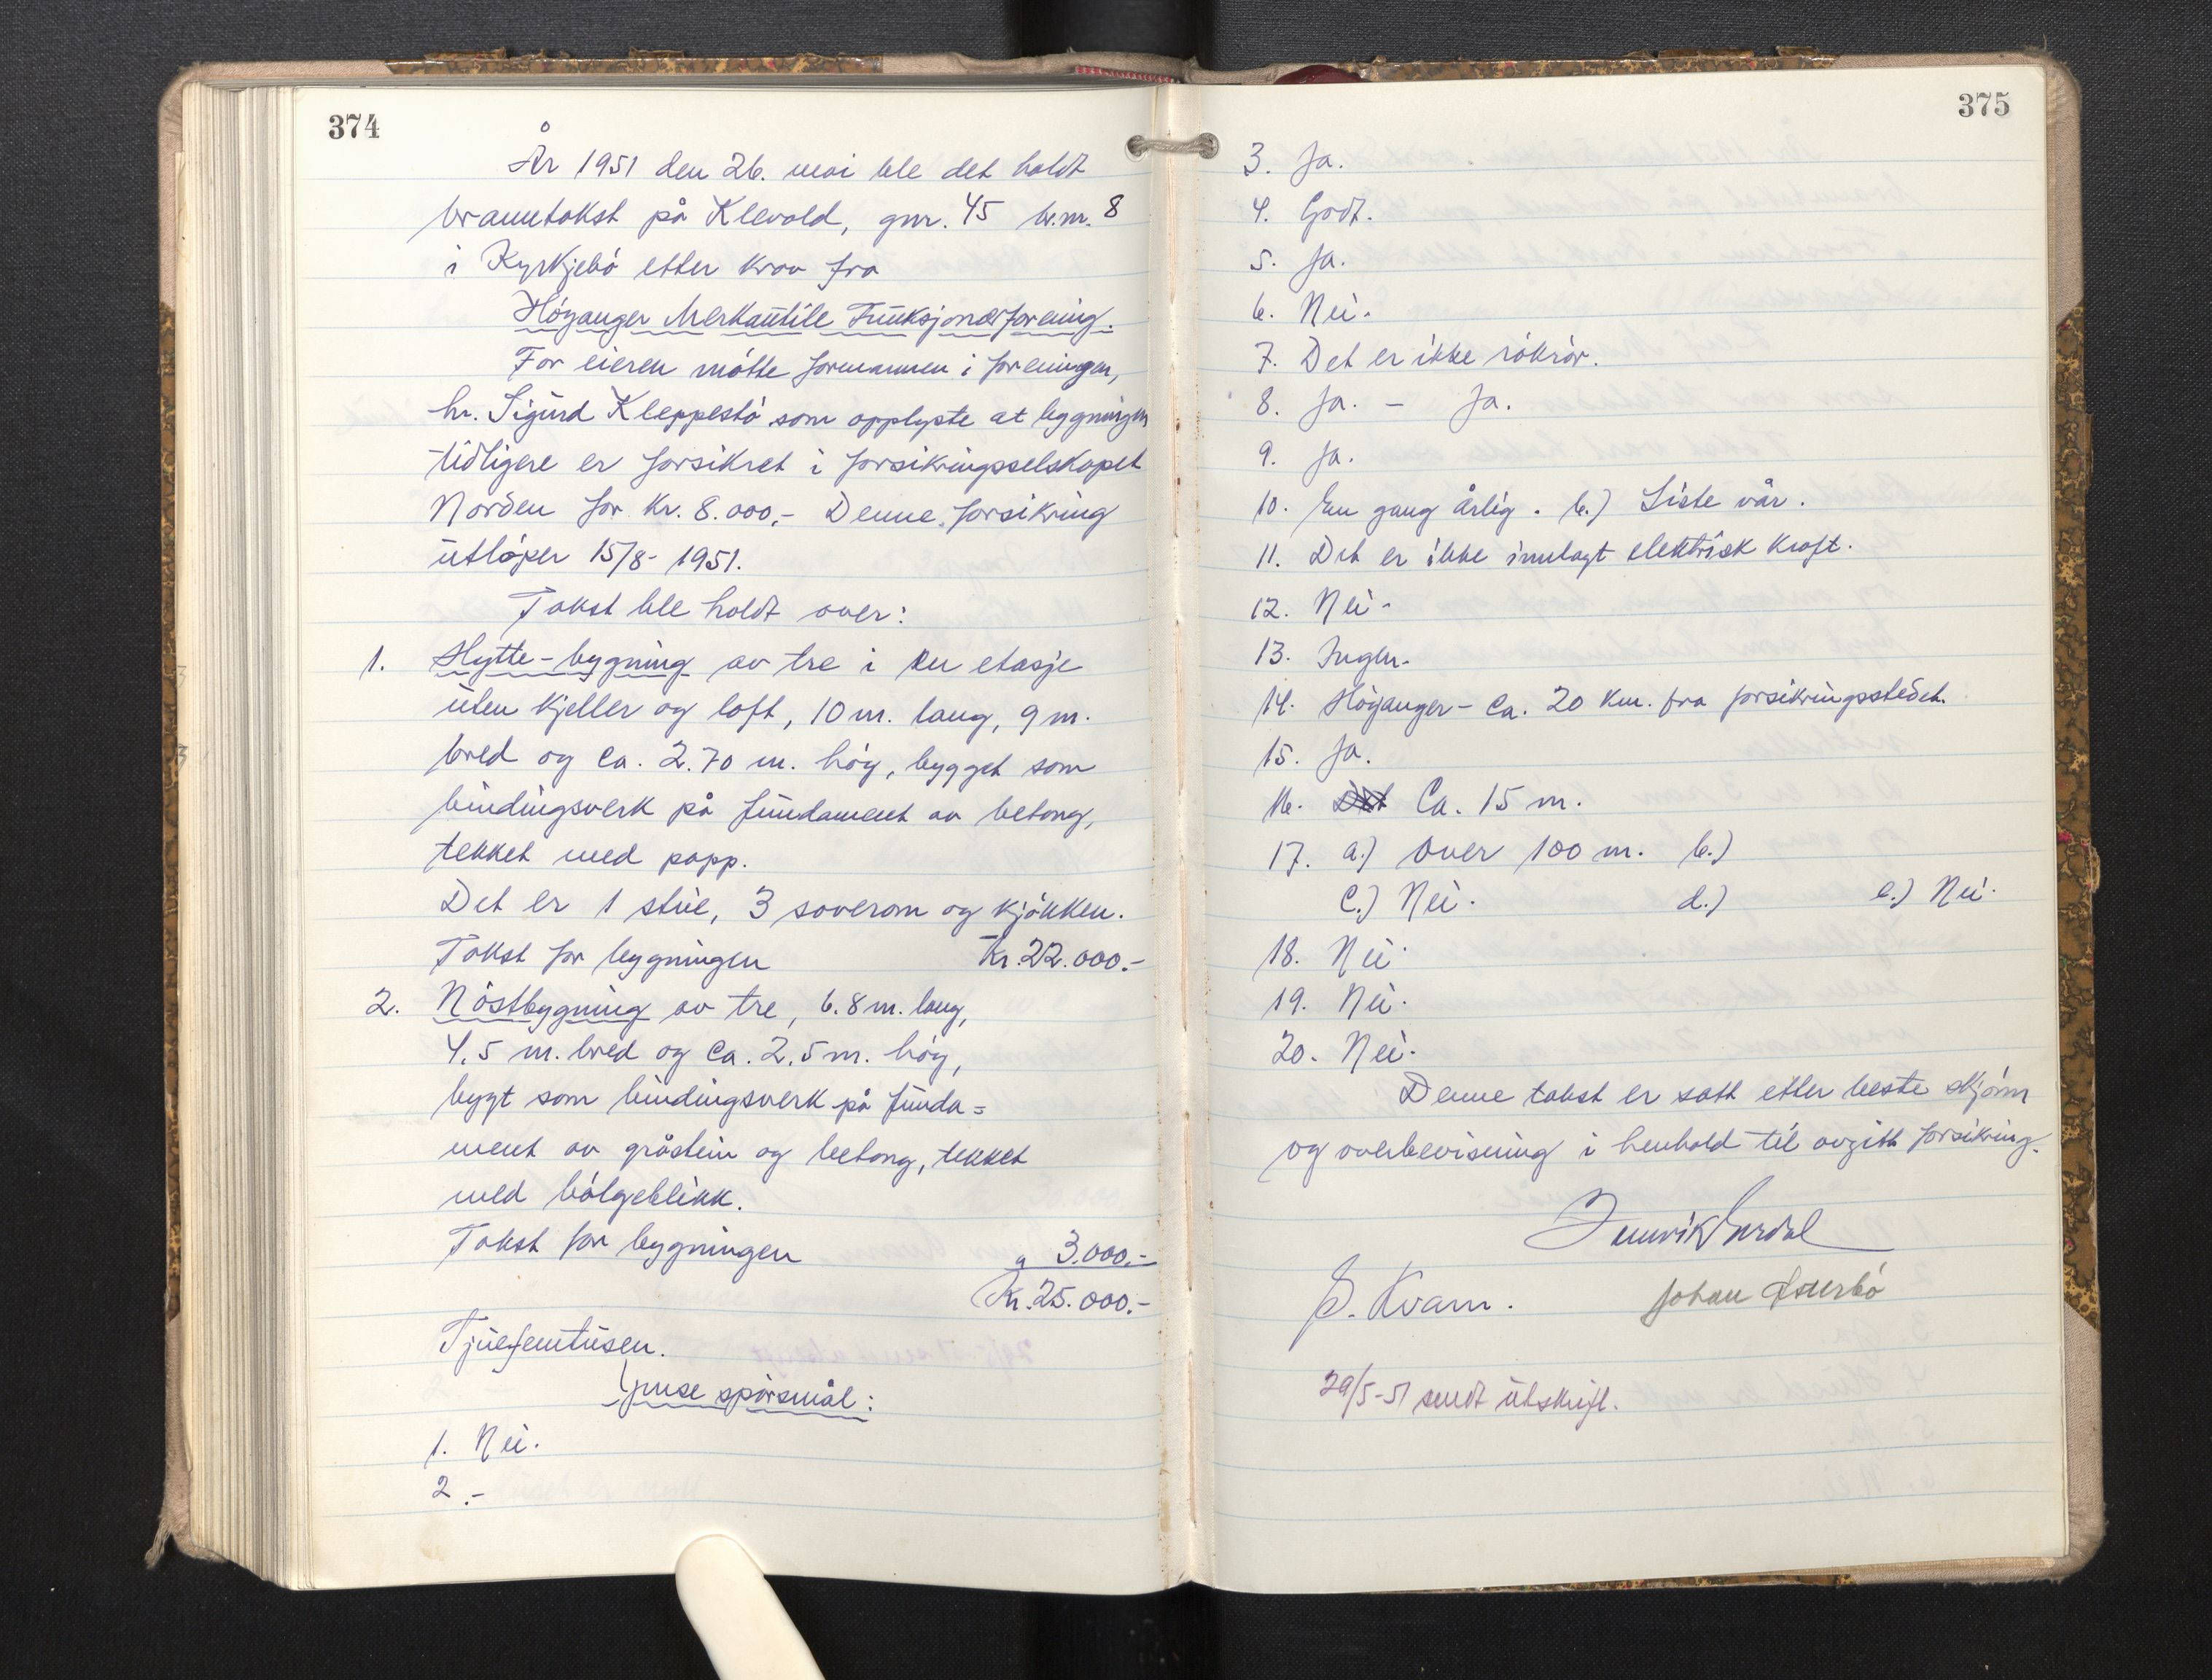 374
År 1951 den 26. mai ble det holdt
branntakst på Klevold, gnr. 45 br.nr. 8
i Kyrkjebö etter krav fra
Höyanger Merkantile Funksjonærforening.
For eieren mötte formannen i foreningen,
hr. Sigurd Kleppestö som opplyste at bygningen
tidligere er forsikret i forsikringsselskapet
Norden for kr. 8.000,- Denne forsikring
utlöper 15/8- 1951.
Takst ble holdt over:
1. Hytte-bygning av tre i en etasje
uten kjeller og loft, 10 m. lang, 9 m.
bred og ca. 2.70 m. höy, bygget som
bindingsverk på fundament av betong,
tekket med papp.
Det er 1 stue, 3 soverom og kjökken.
Takst for bygningen Kr. 22.000.-
2. Nöstbygning av tre, 6.8 m. lang,
4.5 m. bred og ca. 2.5 m. höy,
bygt som bindingsverk på funda=
ment av gråstein og betong, tekket
med bölgeblikk.
Takst for bygningen " 3.000.-
Kr. 25.000.-
Tjuefemtusen.
Ymse spörsmål:
1. Nei.
2.-
375
3. Ja.
4. Godt.
5. Ja.
6. Nei.
7. Det er ikke rökrör.
8. Ja. - Ja.
9. Ja.
10. En gang årlig. b.) Siste vår.
11. Det er ikke innlagt elektrisk kraft.
12. Nei.
13. Ingen.
14. Höyanger - Ca. 20 km. fra forsikringsstedet.
15. Ja.
16. Ca. 15 m.
17. a.) Over 100 m. b.)
c.) Nei. d.) e.) Nei.
18. Nei.
19. Nei.
20. Nei.
Denne takst er satt etter beste skjönn
og overbevisning i henhold til avgitt forsikring.
S. Kvam. Johan Österbö
29/5-51 sendt utskrift.